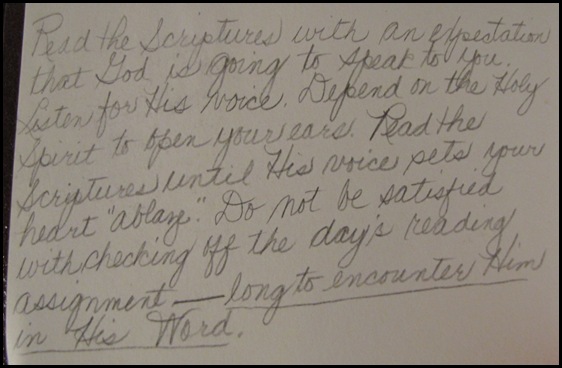 Read the Scriptures with an expectation
that God is going to speak to you.
Listen for His voice. Depend on the Holy
Spirit to open your ears. Read the
Scriptures until His voice sets your
heart "ablaze." Do not be satisfied
with checking off the day's reading
assignment — long to encounter Him
in His Word.